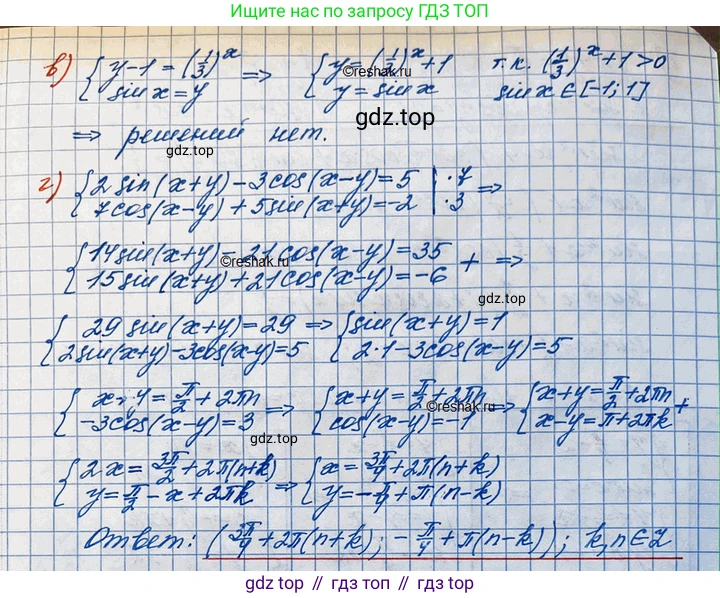 Ищите нас по запросу ГДЗ ТОП
в) { y-1=(1/3)^x => { y=(1/3)^x+1 т.к. (1/3)^x+1>0
sin x=y y=sin x sin x∈[-1;1]
©reshak.ru
gdz.top
=> решений нет.
gdz.top
г) { 2 sin(x+y)-3cos(x-y)=5 | ·7 =>
7cos(x-y)+5sin(x+y)=-2 | ·3
{ 14sin(x+y)-21cos(x-y)=35 + =>
15sin(x+y)+21cos(x-y)=-6
©reshak.ru
gdz.top
{ 29 sin(x+y)=29 => { sin(x+y)=1
2sin(x+y)-3cos(x-y)=5 2·1-3cos(x-y)=5
{ x+y=π/2+2πn => { x+y=π/2+2πn => { x+y=π/2+2πn +
-3cos(x-y)=3 cos(x-y)=-1 x-y=π+2πk
©reshak.ru
gdz.top
{ 2x=3π/2+2π(n+k) => { x=3π/4+2π(n+k)
y=π/2-x+2πk y=-π/4+π(n-k)
Ответ: (3π/4+2π(n+k); -π/4+π(n-k)); k,n∈Z
gdz.top // гдз топ // gdz.top